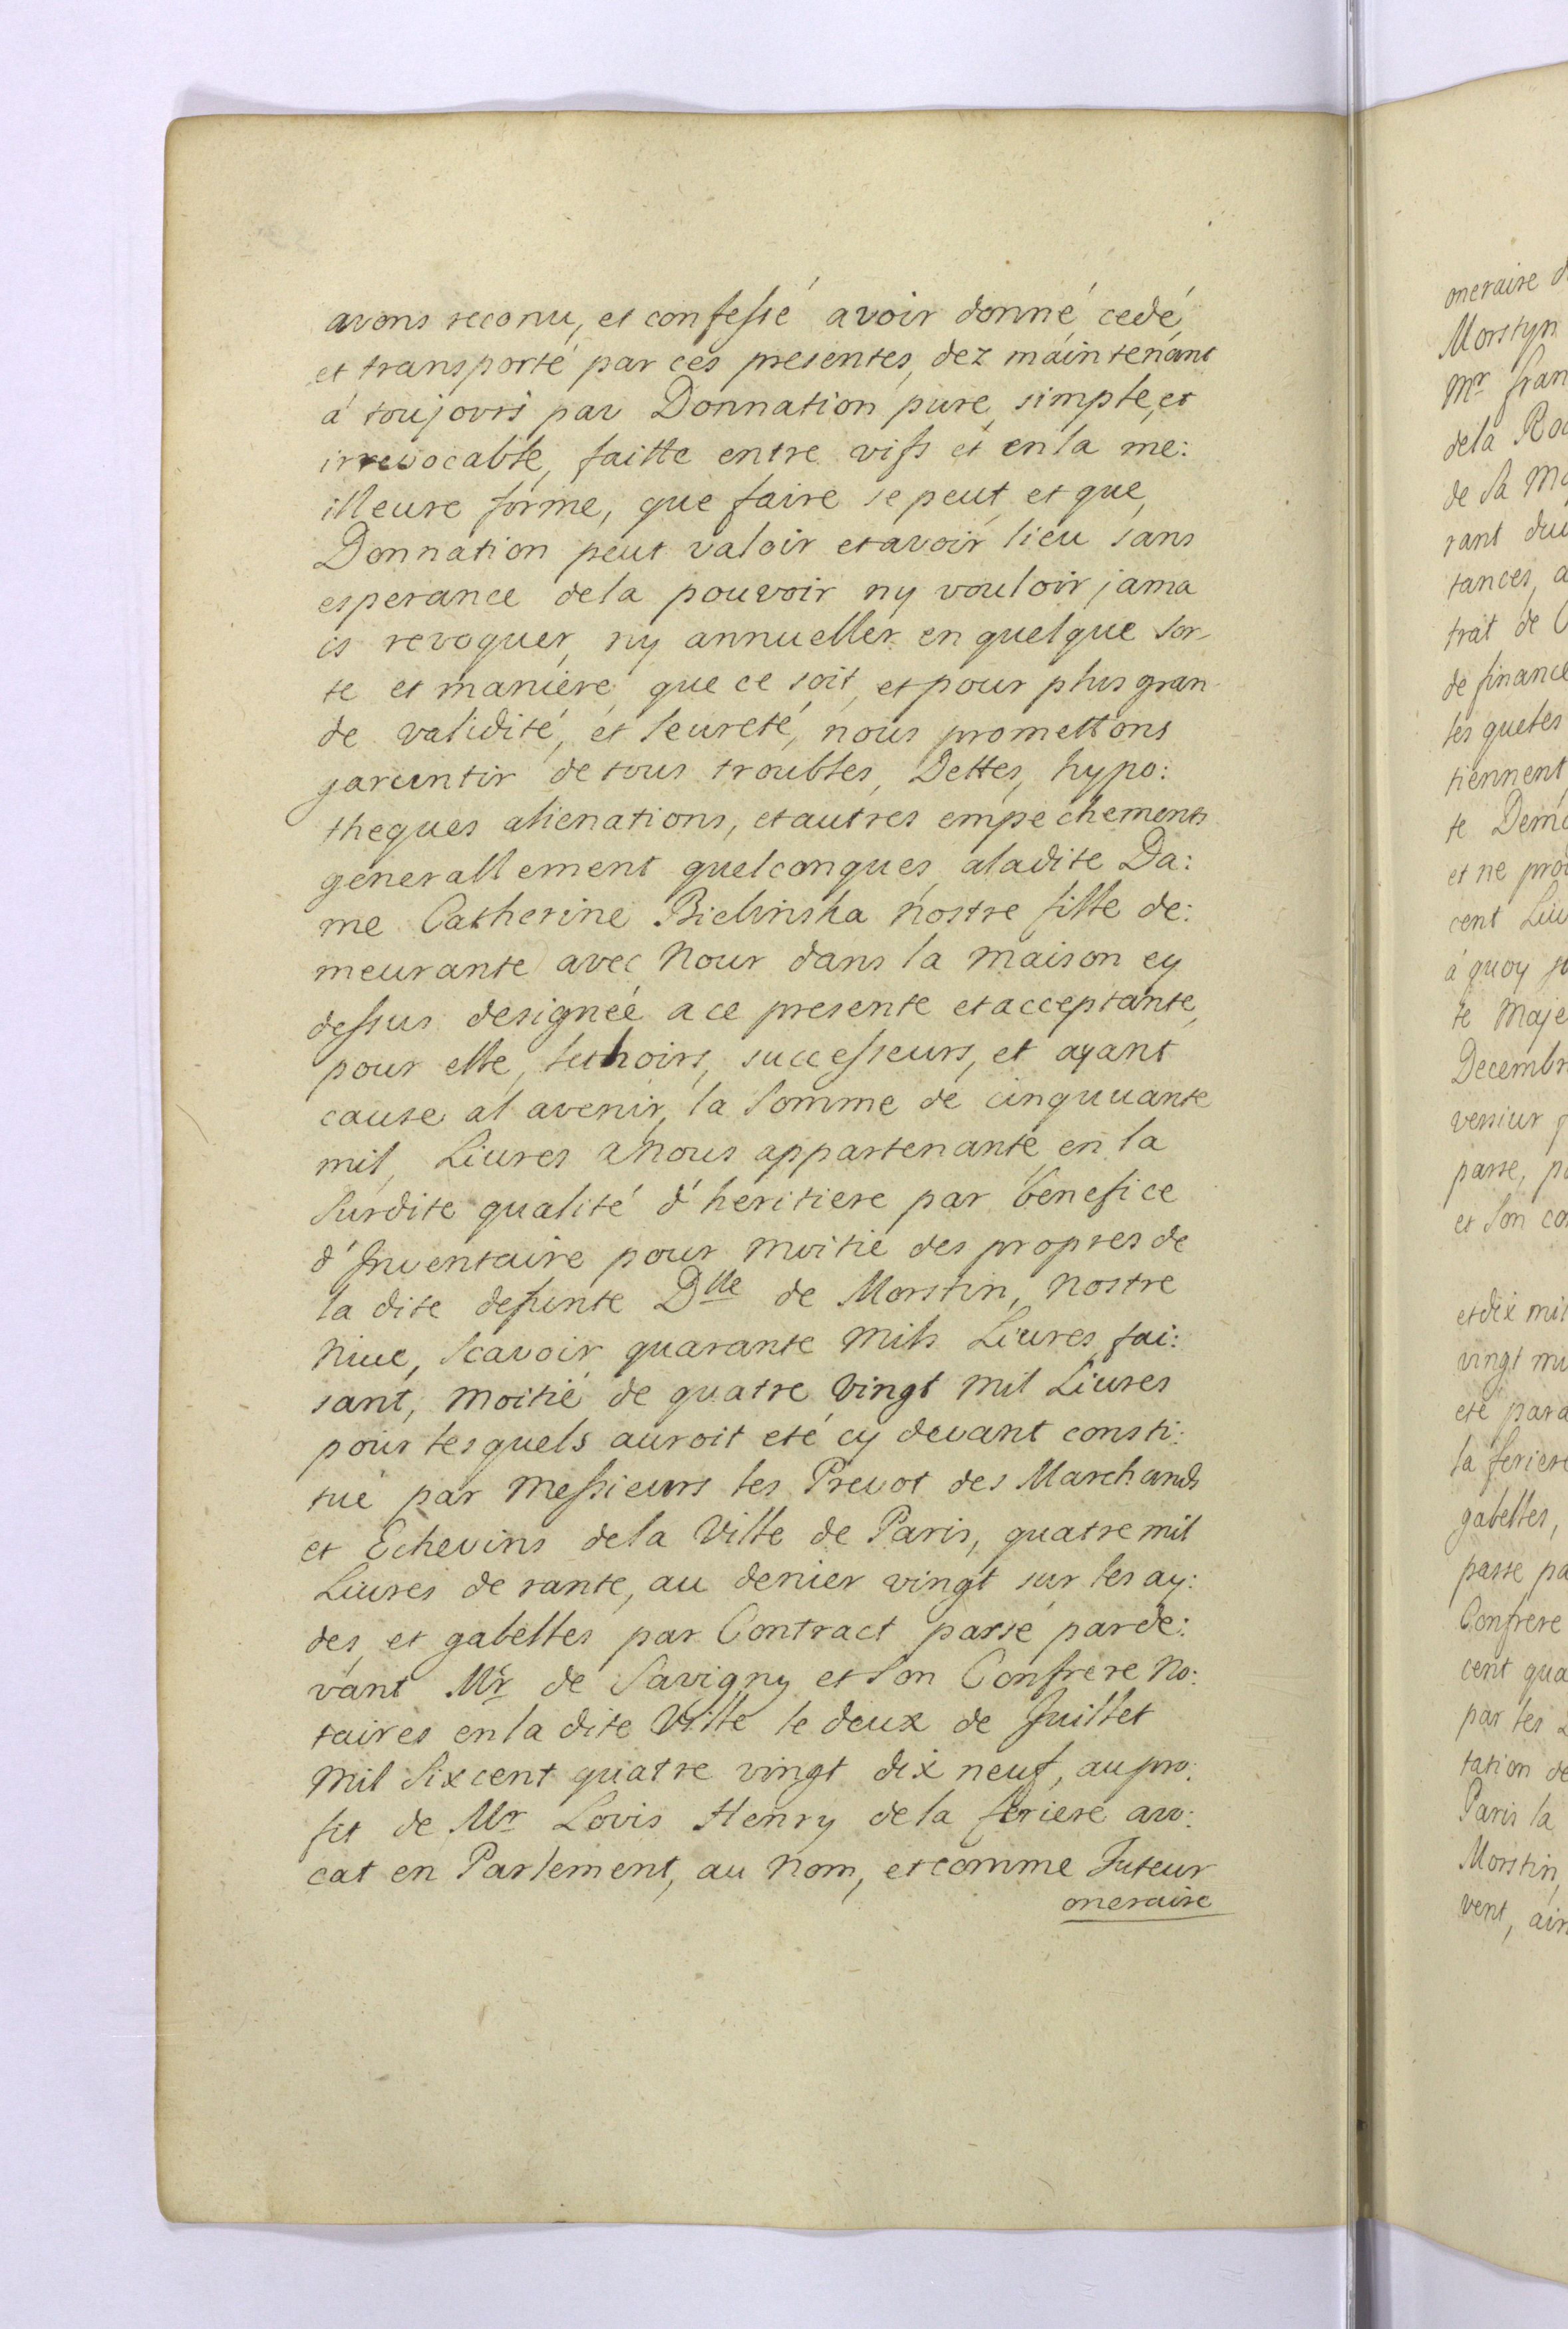 avons reconu, et confessé avoir donné, cedé,
et transporté par ces presentes, dez maintenant
á toujours par Donnation pure, simple, et
irrevocable, faitte entre vifs et en la me:
illeure forme, que faire se peut, et que,
Donnation peut valoir et avoir lieu sans
esperance dela pouvoir ny vouloir jama
is revoquer, ny annueller en quelque sor-
te et maniere que ce soit, et pour plus gran
de validité, et seureté, nous promettons
garantir de tous troubles, Dettes, hypo:
theques alienations, et autres empechements
generallement quelconques, aladite Da:
me Catherine Bielinska nostre fille de:
meurante avec Nour dans la maison cy
dessus designée a ce presente et acceptante,
pour elle, ses hoirs, successeurs, et ayant
cause al avenir, la Somme de cinquuante
mil, Livres a Nous appartenante, en la
Surdite qualité d'heritiere par benefice
d'Inventaire pour moitie des propres de
la dite defunte Dlle de Morstin, Nostre
Niece, Scavoir quarante mils Livres, fai:
sant, moitié de quatre vingt mil Livres
pour lesquels auroit eté cy devant consti:
tué par Messieurs les Prevot des Marchands
et Echevins dela Ville de Paris, quatre mil
Livres de rante, au denier vingt sur les ay:
des, et gabelles par Contract passé parde:
vant Mr de Savigny et Son Confrere No:
taires en la dite Ville le deux de Juillet
mil Sixcent quatre vingt dix neuf, au pro:
fit de Mr Lovis Henry dela feriere avo:
cat en Parlement, au Nom, et comme Tuteur
oneraire
oneraire
Morstyn
Mr fran
dela Ro
de Sa Ma
rant du
tances, a
trat de
de finance
les queles
tiennent
te Dem
et ne pro
cent Liv
á quoy
te Maje
Decembr
versieur
passe, p
et Son co
et dix mil
vingt mi
eté para
la feriere
gabelles,
passe pa
Confrere
cent qua
par les
tation de
Paris la
Morstin,
vent, ain